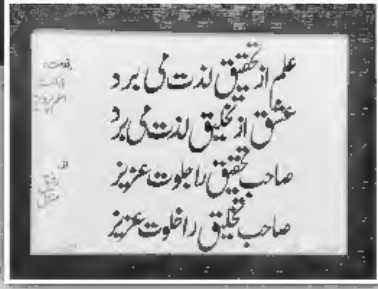 علم از تحقیق لذت می برد
عشق از تخلیق لذت می برد
صاحب تحقیق را جلوت عزیز
صاحب تخلیق را خلوت عزیز
بخدمت: